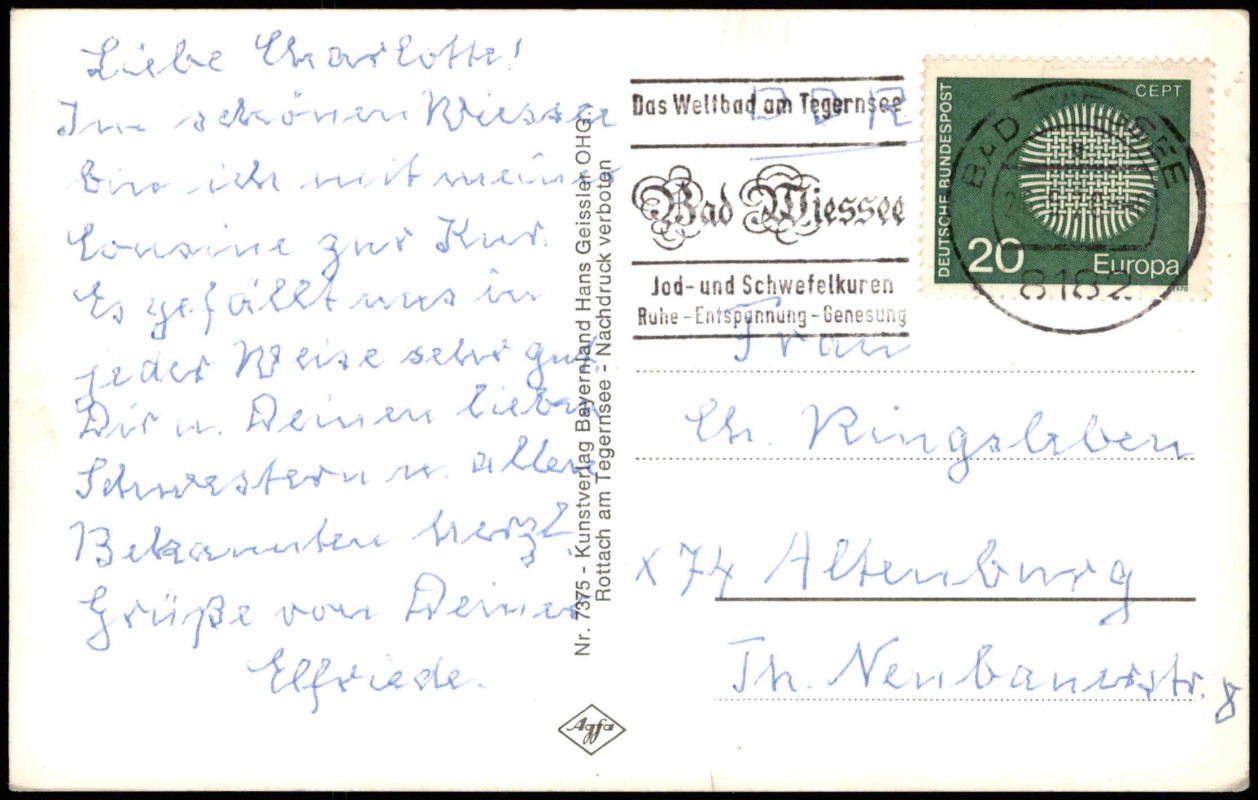 Liebe Charlotte!
Im schönen Wiessee
bin ich mit meiner
Cousine zur Kur.
Es gefällt uns in
jeder Weise sehr gut.
Dir u. Deinen lieben
Schwestern u. allen
Bekannten herzl.
Grüße von Deiner
Elfriede.
Nr. 7375 - Kunstverlag Bayernland Hans Geissler OHG.
Rottach am Tegernsee - Nachdruck verboten
Agfa
Das Weltbad am Tegernsee
Bad Wiessee
Jod- und Schwefelkuren
Ruhe - Entspannung - Genesung
DDR
DEUTSCHE BUNDESPOST
CEPT
20
Europa
1970
BAD WIESSEE
8182
Frau
Ch. Ringsleben
X74 Altenburg
Th. Neubauerstr. 8